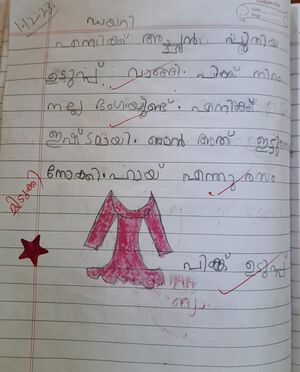 ഡയറി
എനിക്ക് അച്ഛൻ പുതിയ
ഉടുപ്പ് വാങ്ങി. പിങ്ക് നിറം
നല്ല ഭംഗിയുണ്ട്. എനിക്ക്
ഇഷ്ടമായി. ഞാൻ അത് ഇട്ടു
നോക്കി. ഹായ് എന്തു രസം
മിടുക്കി
പിങ്ക് ഉടുപ്പ്